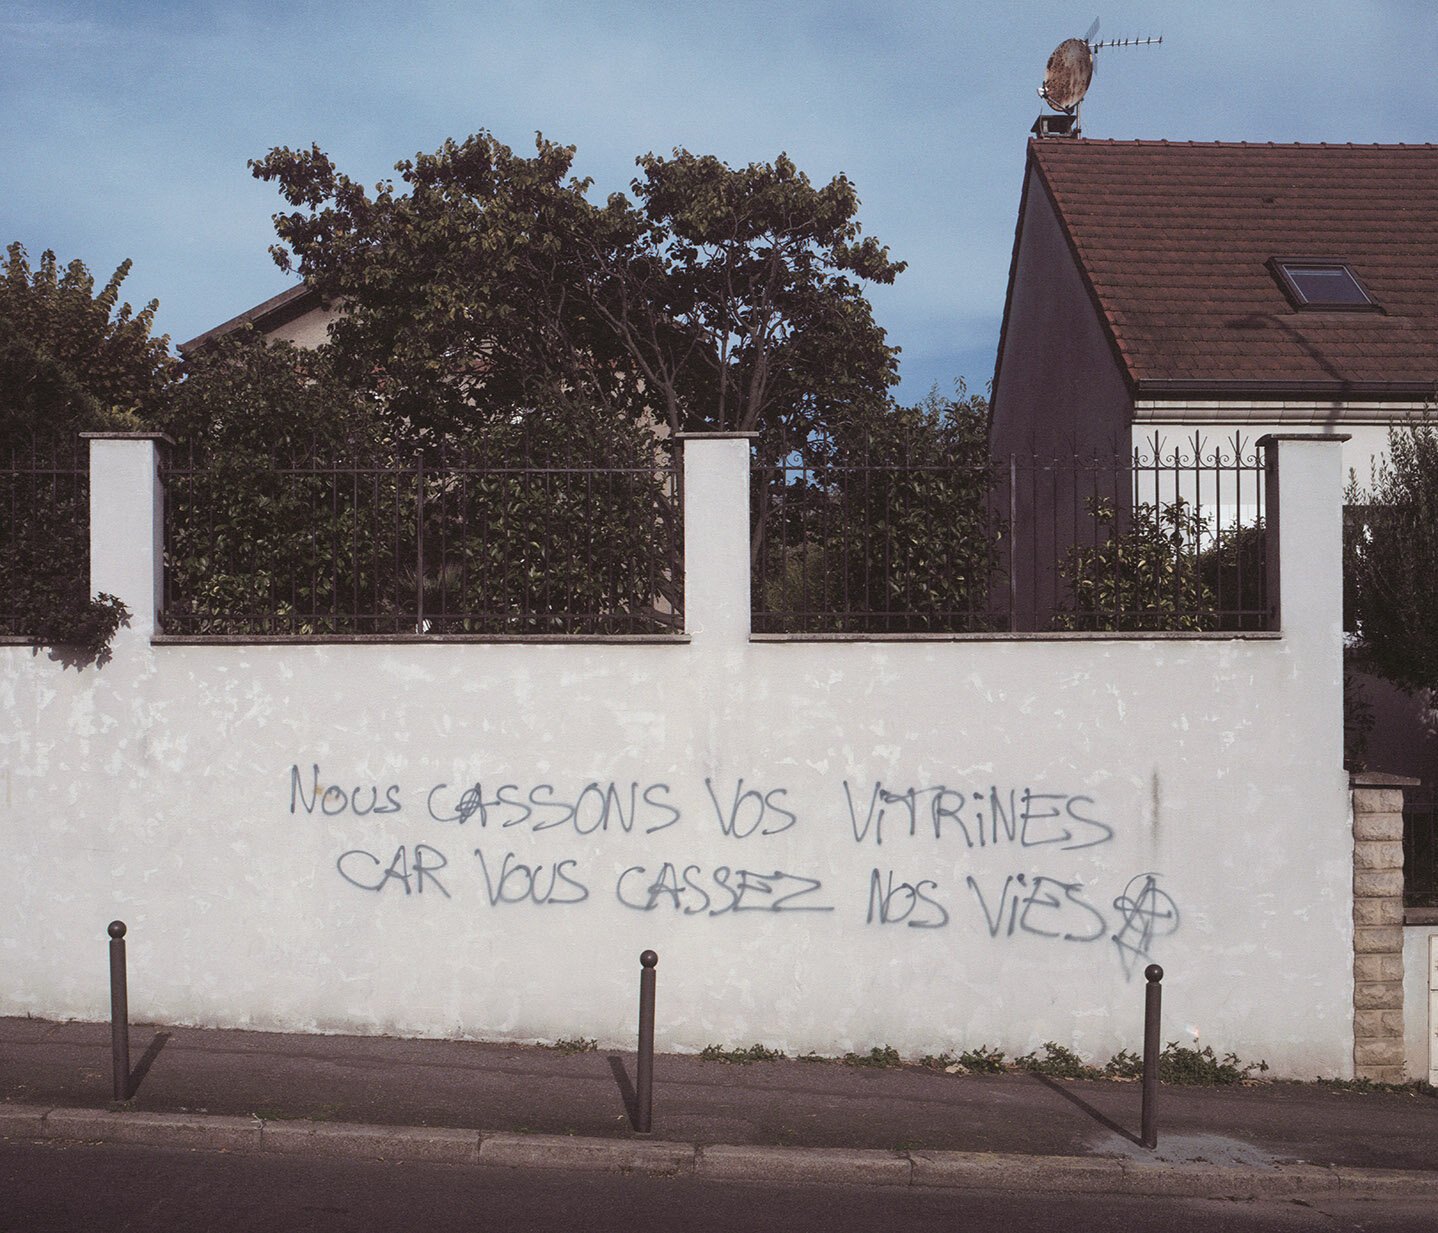 NOUS CASSONS VOS ViTRiNES
CAR VOUS CASSEZ NOS ViES Ⓐ